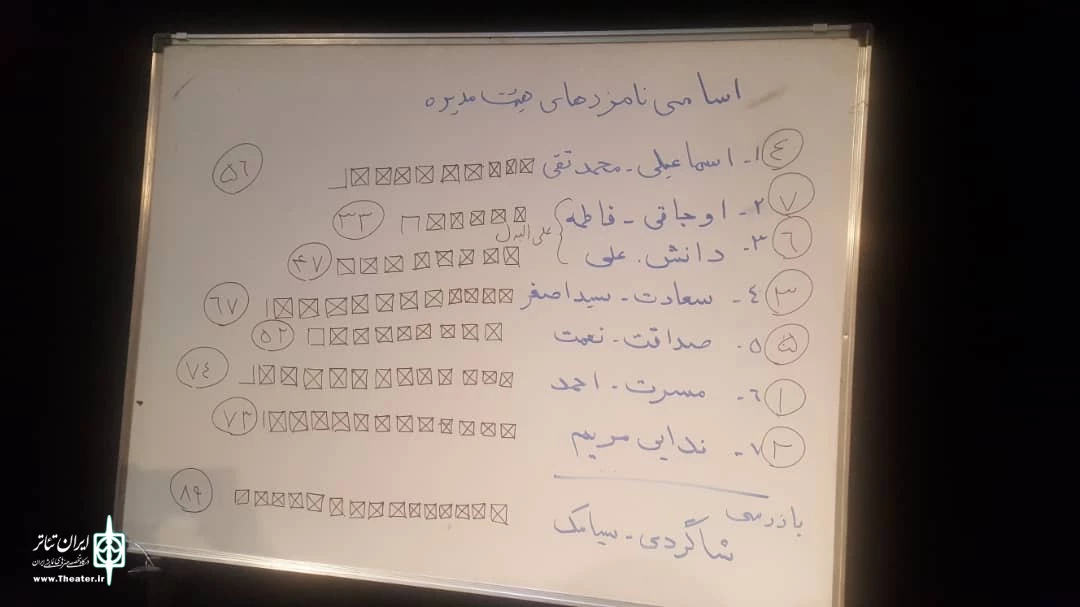 اسامی نامزدهای هیئت مدیره
۴ ۱- اسماعیلی - محمد تقی ۵۶
۷ ۲- اوجاقی - فاطمه ۳۳
علی البدل
۶ ۳- دانش. علی ۴۷
۳ ۴- سعادت - سید اصغر ۶۷
۵ ۵- صداقت - نعمت ۵۲
۱ ۶- مسرت - احمد ۷۴
۲ ۷- ندایی مریم ۷۳
بازرسی
شاگردی - سیامک ۸۹
ایران تئاتر
www.Theater.ir